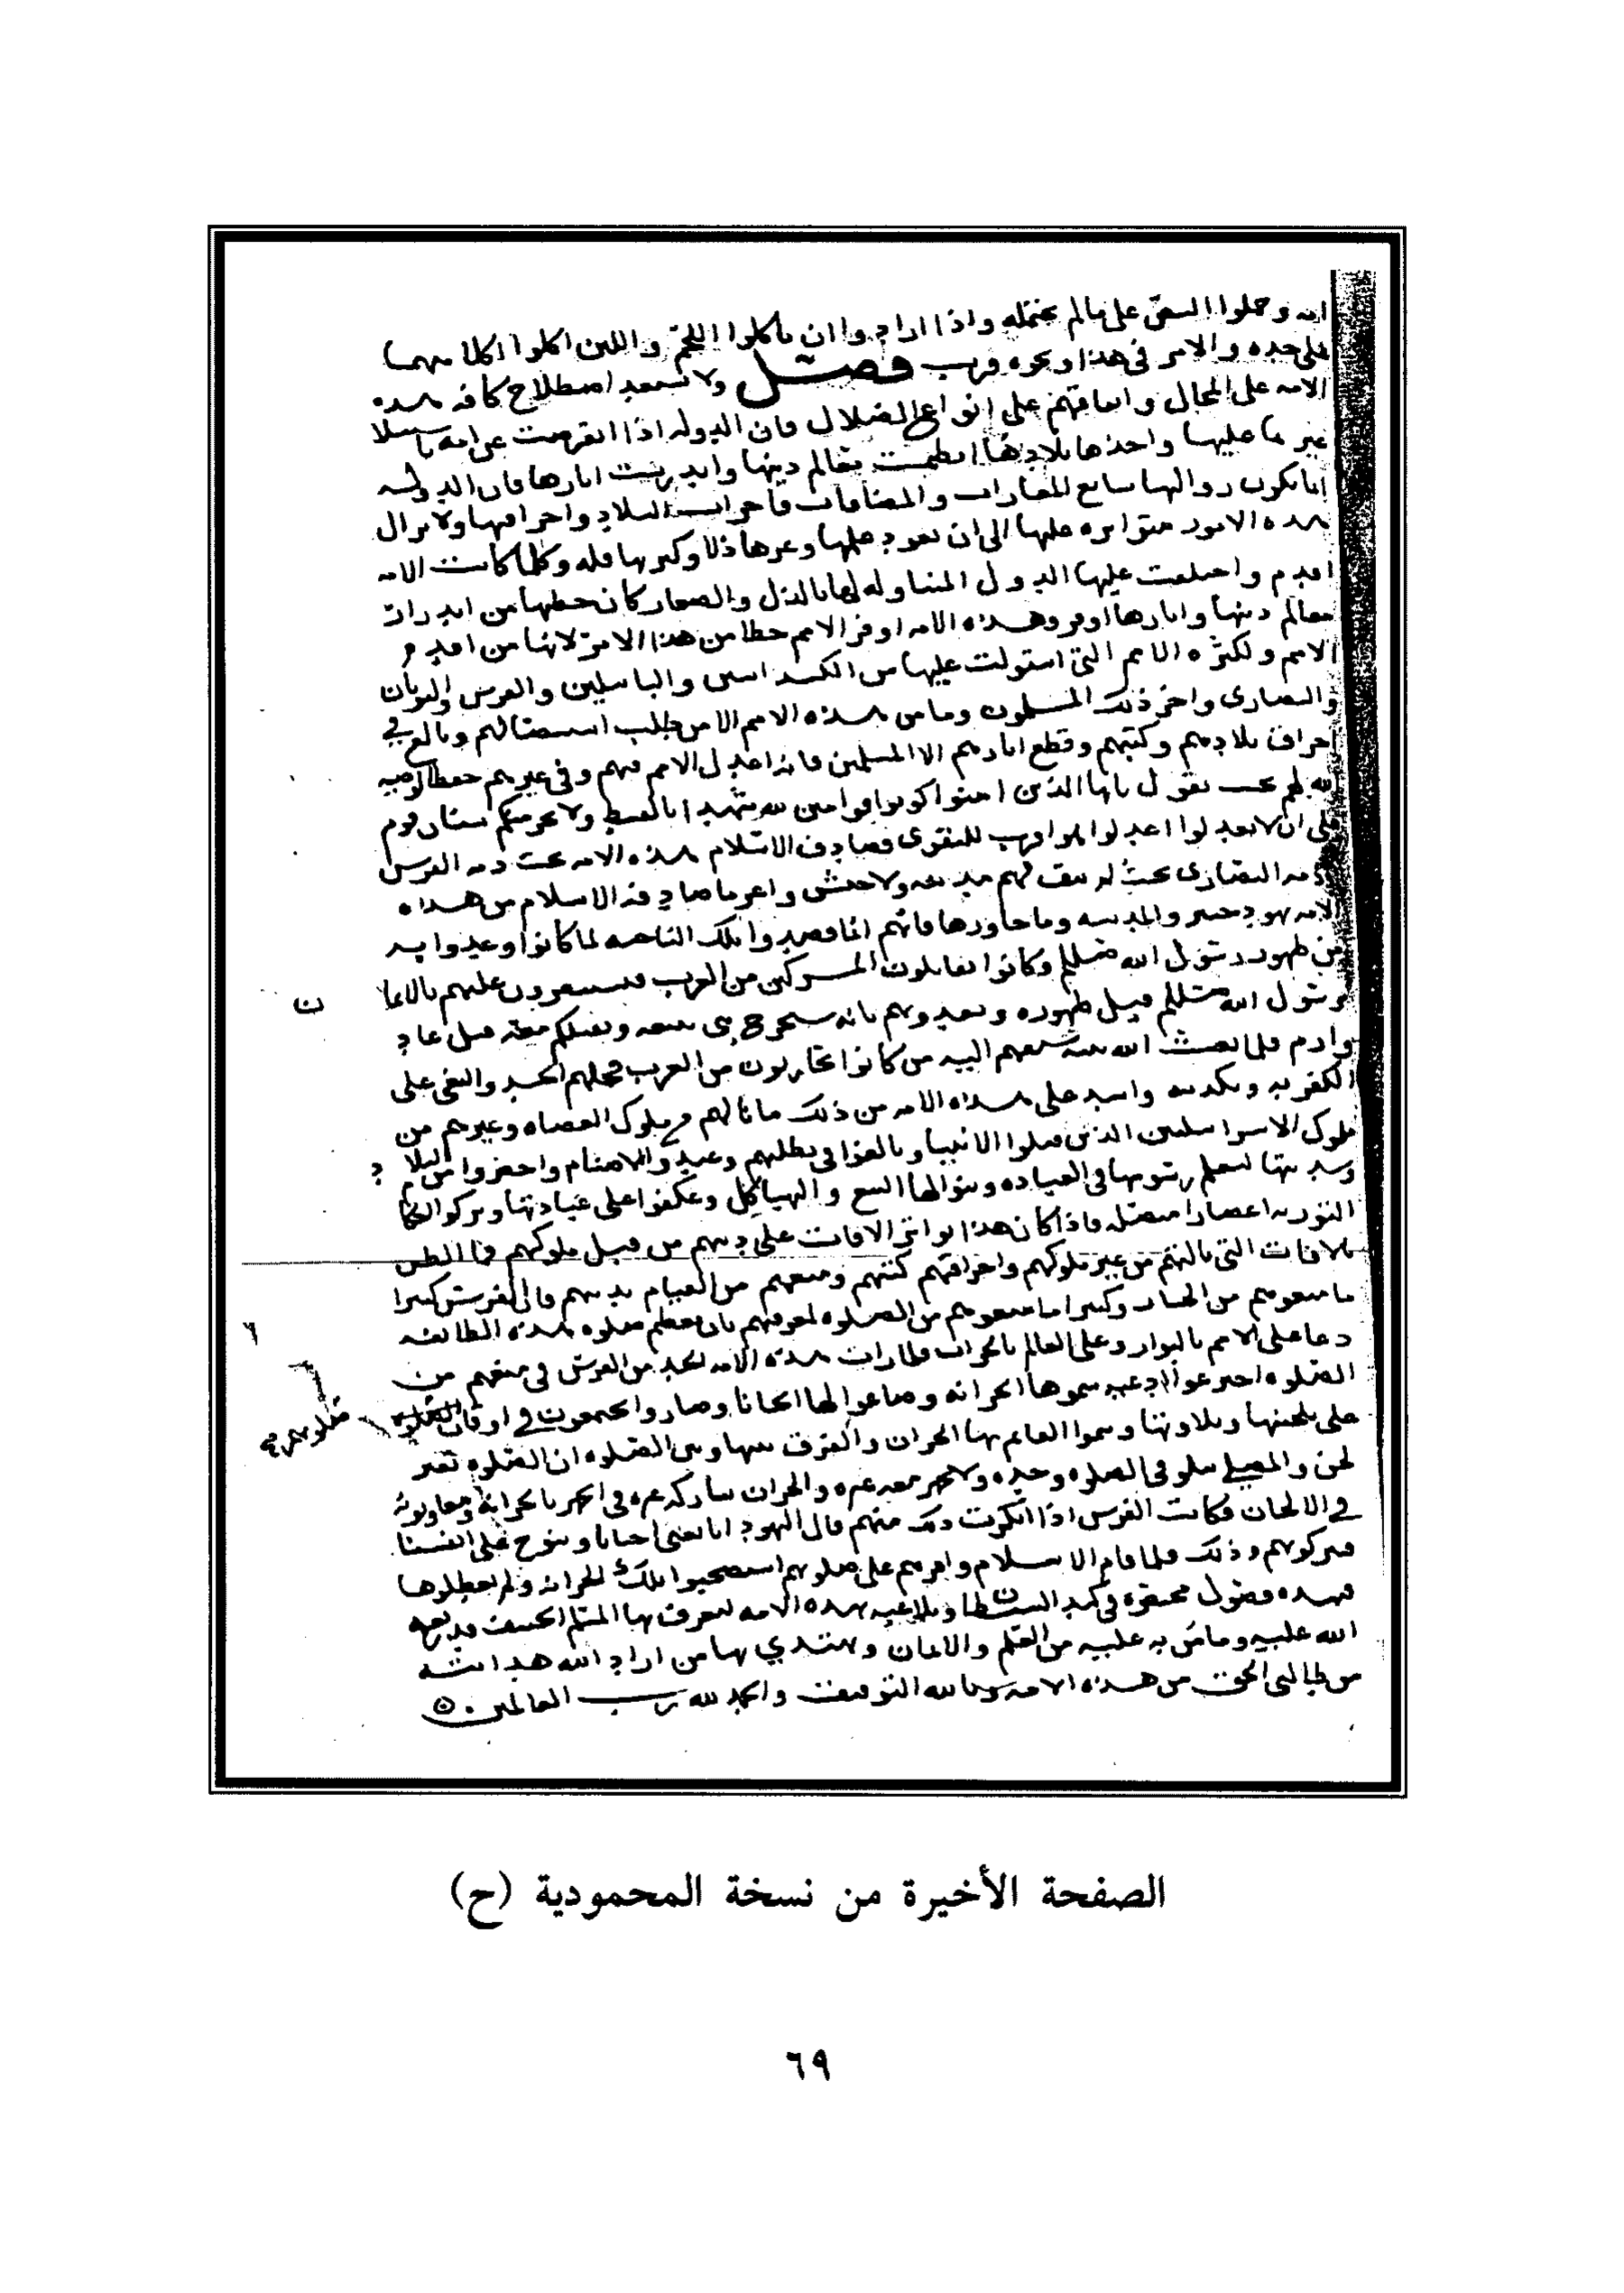 الله وحملوا النص على مالم يحتمله واذا ارادوا ان ياكلوا اللحم واللبن اكلوا كلا منهما
على حده والامر في هذا ونحوه قريب فصل ولا تستبعد اصطلاح كافه هذه
الامه على المحال واتفاقهم على انواع الضلال فان الدوله اذا انقرضت عن امه باستيلا
غيرها عليها واخذها بلادها انطمست معالم دينها واندرست اثارها فان الدوله
انما يكون زوالها بتتابع الغارات والمصافات واخراب البلاد واحراقها ولا تزال
هذه الامور متواتره عليها الى ان يعود علمها وعزها ذلا وكثرتها قله وكلما كانت الامه
اقدم واختلفت عليها الدول المتناوله لها بالذل والصغار كان حظها من اندراس
معالم دينها واثارها اوفر وهذه الامه اوفر الامم حظا من هذا الامر لانها من اقدم
الامم ولكثره الامم التي استولت عليها من الكسدانيين والبابليين والفرس واليونان
والنصارى واخر ذلك المسلمون وما من هذه الامم الا من طلب استئصالهم وبالغ في
احراق بلادهم وكتبهم وقطع اثارهم الا المسلمين فانه اعدل الامم فيهم وفي غيرهم حفظا لوصيه
الله لهم حيث يقول يا ايها الذين امنوا كونوا قوامين لله شهدا بالقسط ولا يجرمنكم شنان قوم
على ان لا تعدلوا اعدلوا هو اقرب للتقوى فصادف الاسلام هذه الامه تحت ذمه الفرس
وذمه النصارى بحيث لم يبق لهم مدينه ولا جيش واعز ما صادفه الاسلام من هذه
الامه يهود خيبر والمدينه وما جاورها فانهم انما قصدوا تلك الناحيه لما كانوا وعدوا به
من ظهور رسول الله صللم وكانوا يقاتلون المشركين من العرب فيستنصرون عليهم بالايما
ن
برسول الله صللم قبل ظهوره ويعدونهم بانه سيخرج نبي نتبعه ونقتلكم معه قتل عاد
وارم فلما بعث الله نبيه سبقهم اليه من كانوا يحاربون من العرب فحملهم الحسد والبغي على
الكفر به وتكذيبه واشد على هذه الامه من ذلك ما نالهم من ملوك العصاه وغيرهم من
ملوك الاسرائيليين الذين قتلوا الانبيا وبالغوا في تطلبهم وعبدوا الاصنام واحضروا من البلا
د
وسدنتها لتعليم رسومها في العباده وبنوا لها البيع والهياكل وعكفوا على عبادتها وتركوا احكام
التوريه اعصارا متصله فاذا كان هذا تواتر الافات على دينهم من قبل ملوكهم فما الظن
بالافات التي نالتهم من غير ملوكهم واحراقهم كتبهم ومنعهم من القيام بدينهم فان الفرس كثيرا
ما منعوهم من الختان وكثيرا ما منعوهم من الصلوه لمعرفتهم بان معظم صلوه هذه الطائفه
٦
دعا على الامم بالبوار وعلى العالم بالخراب فلما رات هذه الامه الجد من الفرس في منعهم من
الصلوه اخترعوا ادعيه سموها الحزانه وصاغوا لها الحانا وصاروا يجتمعون في اوقات الصلوه
على تلحينها وتلاوتها وسموا القايم بها الحزان والفرق بينها وبين الصلوه ان الصلوه بغير
لحن والمصلي يتلو في الصلوه وحده ولا يجهر معه غيره والحزان يشاركه غيره في الجهر بالحزانه ومعاونوه
في الالحان فكانت الفرس اذا انكرت ذلك منهم قال اليهود انا نغني احيانا وننوح على انفسنا
فتركوهم وذلك فلما قام الاسلام واقرهم على صلوتهم استصحبوا تلك الحزانه ولم يعطلوها
فهذه فصول مختصره في كيد الشيطان وتلاعبه بهذه الامه ليعرف بها المسلم الحنيف قدر نعمه
الله عليه وما من به عليه من العلم والايمان ويهتدي بها من اراد الله هدايته
من طالبي الحق من هذه الامه وبالله التوفيق والحمد لله رب العالمين
الصفحة الأخيرة من نسخة المحمودية (ح)
٦٩